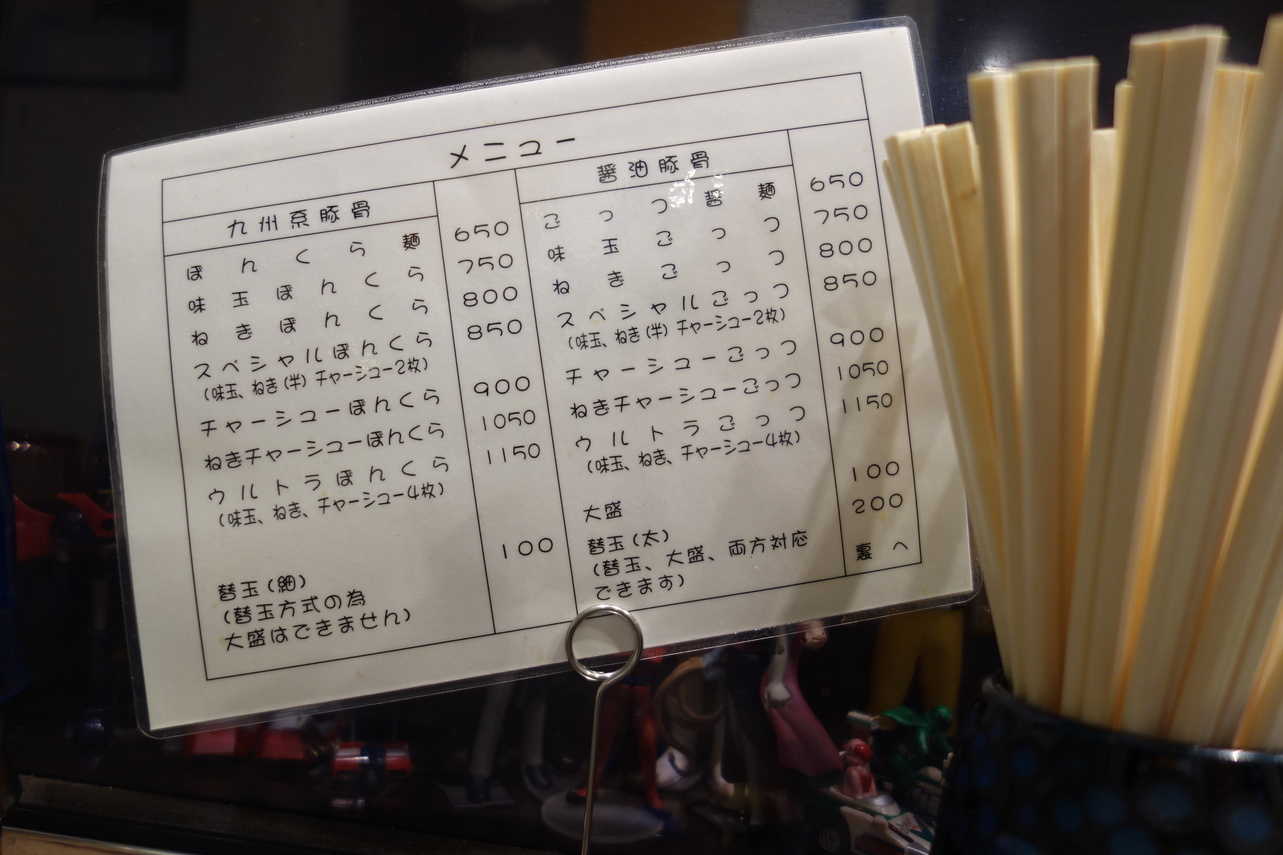 メニュー
九州系豚骨
ぼんくら麺 650
味玉ぼんくら 750
ねぎぼんくら 800
スペシャルぼんくら 850
(味玉、ねぎ(半)チャーシュー2枚)
チャーシューぼんくら 900
ねぎチャーシューぼんくら 1050
ウルトラぼんくら 1150
(味玉、ねぎ、チャーシュー4枚)
替玉(細) 100
(替玉方式の為
大盛はできません)
醤油豚骨
ごっつ醤麺 650
味玉ごっつ 750
ねぎごっつ 800
スペシャルごっつ 850
(味玉、ねぎ(半)チャーシュー2枚)
チャーシューごっつ 900
ねぎチャーシューごっつ 1050
ウルトラごっつ 1150
(味玉、ねぎ、チャーシュー4枚)
大盛 100
替玉(太) 200
(替玉、大盛、両方対応
できます)
裏へ